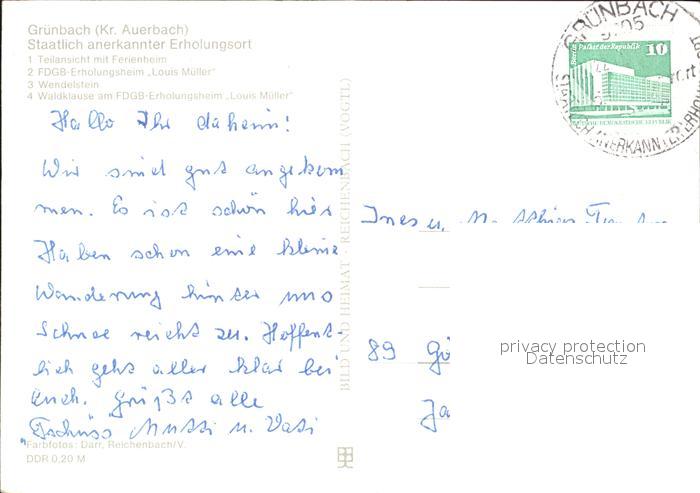 Grünbach (Kr. Auerbach)
Staatlich anerkannter Erholungsort
1 Teilansicht mit Ferienheim
2 FDGB-Erholungsheim „Louis Müller"
3 Wendelstein
4 Waldklause am FDGB-Erholungsheim „Louis Müller"
Hallo Ihr daheim!
Wir sind gut angekom
men. Es ist schön hier
Haben schon eine kleine
Wanderung hinter uns
Schnee reicht zu. Hoffent-
lich geht alles klar bei
Euch. Grüßt alle
"Tschüss" Mutti u. Vati
Farbfotos: Darr, Reichenbach/V.
DDR 0,20 M
BILD UND HEIMAT · REICHENBACH (VOGTL)
GRÜNBACH
STAATLICH ANERKANNTER ERHOLUNGSORT
Palast der Republik
10
DEUTSCHE DEMOKRATISCHE REPUBLIK
Ines u.
89 Gö
Ja
privacy protection
Datenschutz